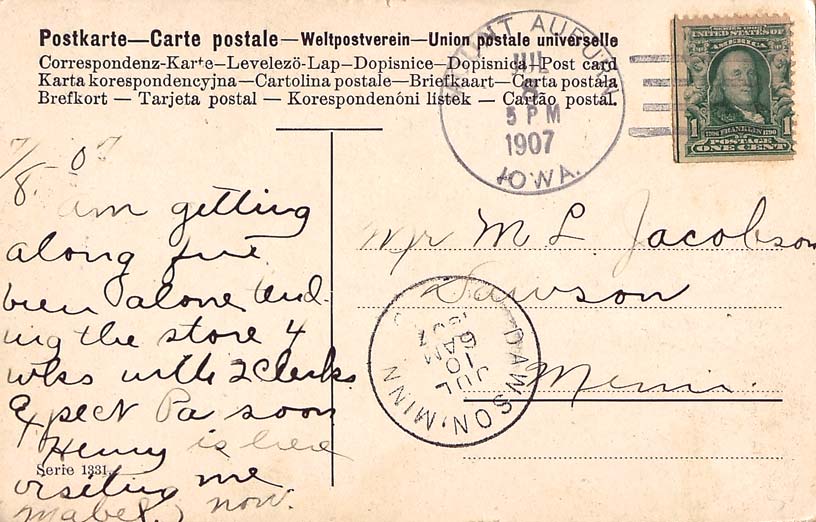 Postkarte—Carte postale—Weltpostverein—Union postale universelle
Correspondenz-Karte—Levelező-Lap—Dopisnice—Dopisnica—Post card
Karta korespondencyjna—Cartolina postale—Briefkaart—Carta postala
Brefkort — Tarjeta postal — Korespondenóni listek — Cartão postal.
MOUNT AUBURN
JUL
8
5 PM
1907
IOWA.
SERIES 1902
UNITED STATES OF
AMERICA
1706 FRANKLIN 1790
1 POSTAGE 1
ONE CENT
7/8. 07
am getting
along fine
been alone tend-
ing the store 4
wks with 2 clerks
Expect Pa soon
Henny is here
visiting me
now.
Mabel
Serie 1331.
Mr M L Jacobson
Dawson
Minn.
DAWSON, MINN
JUL
10
6 AM
1907